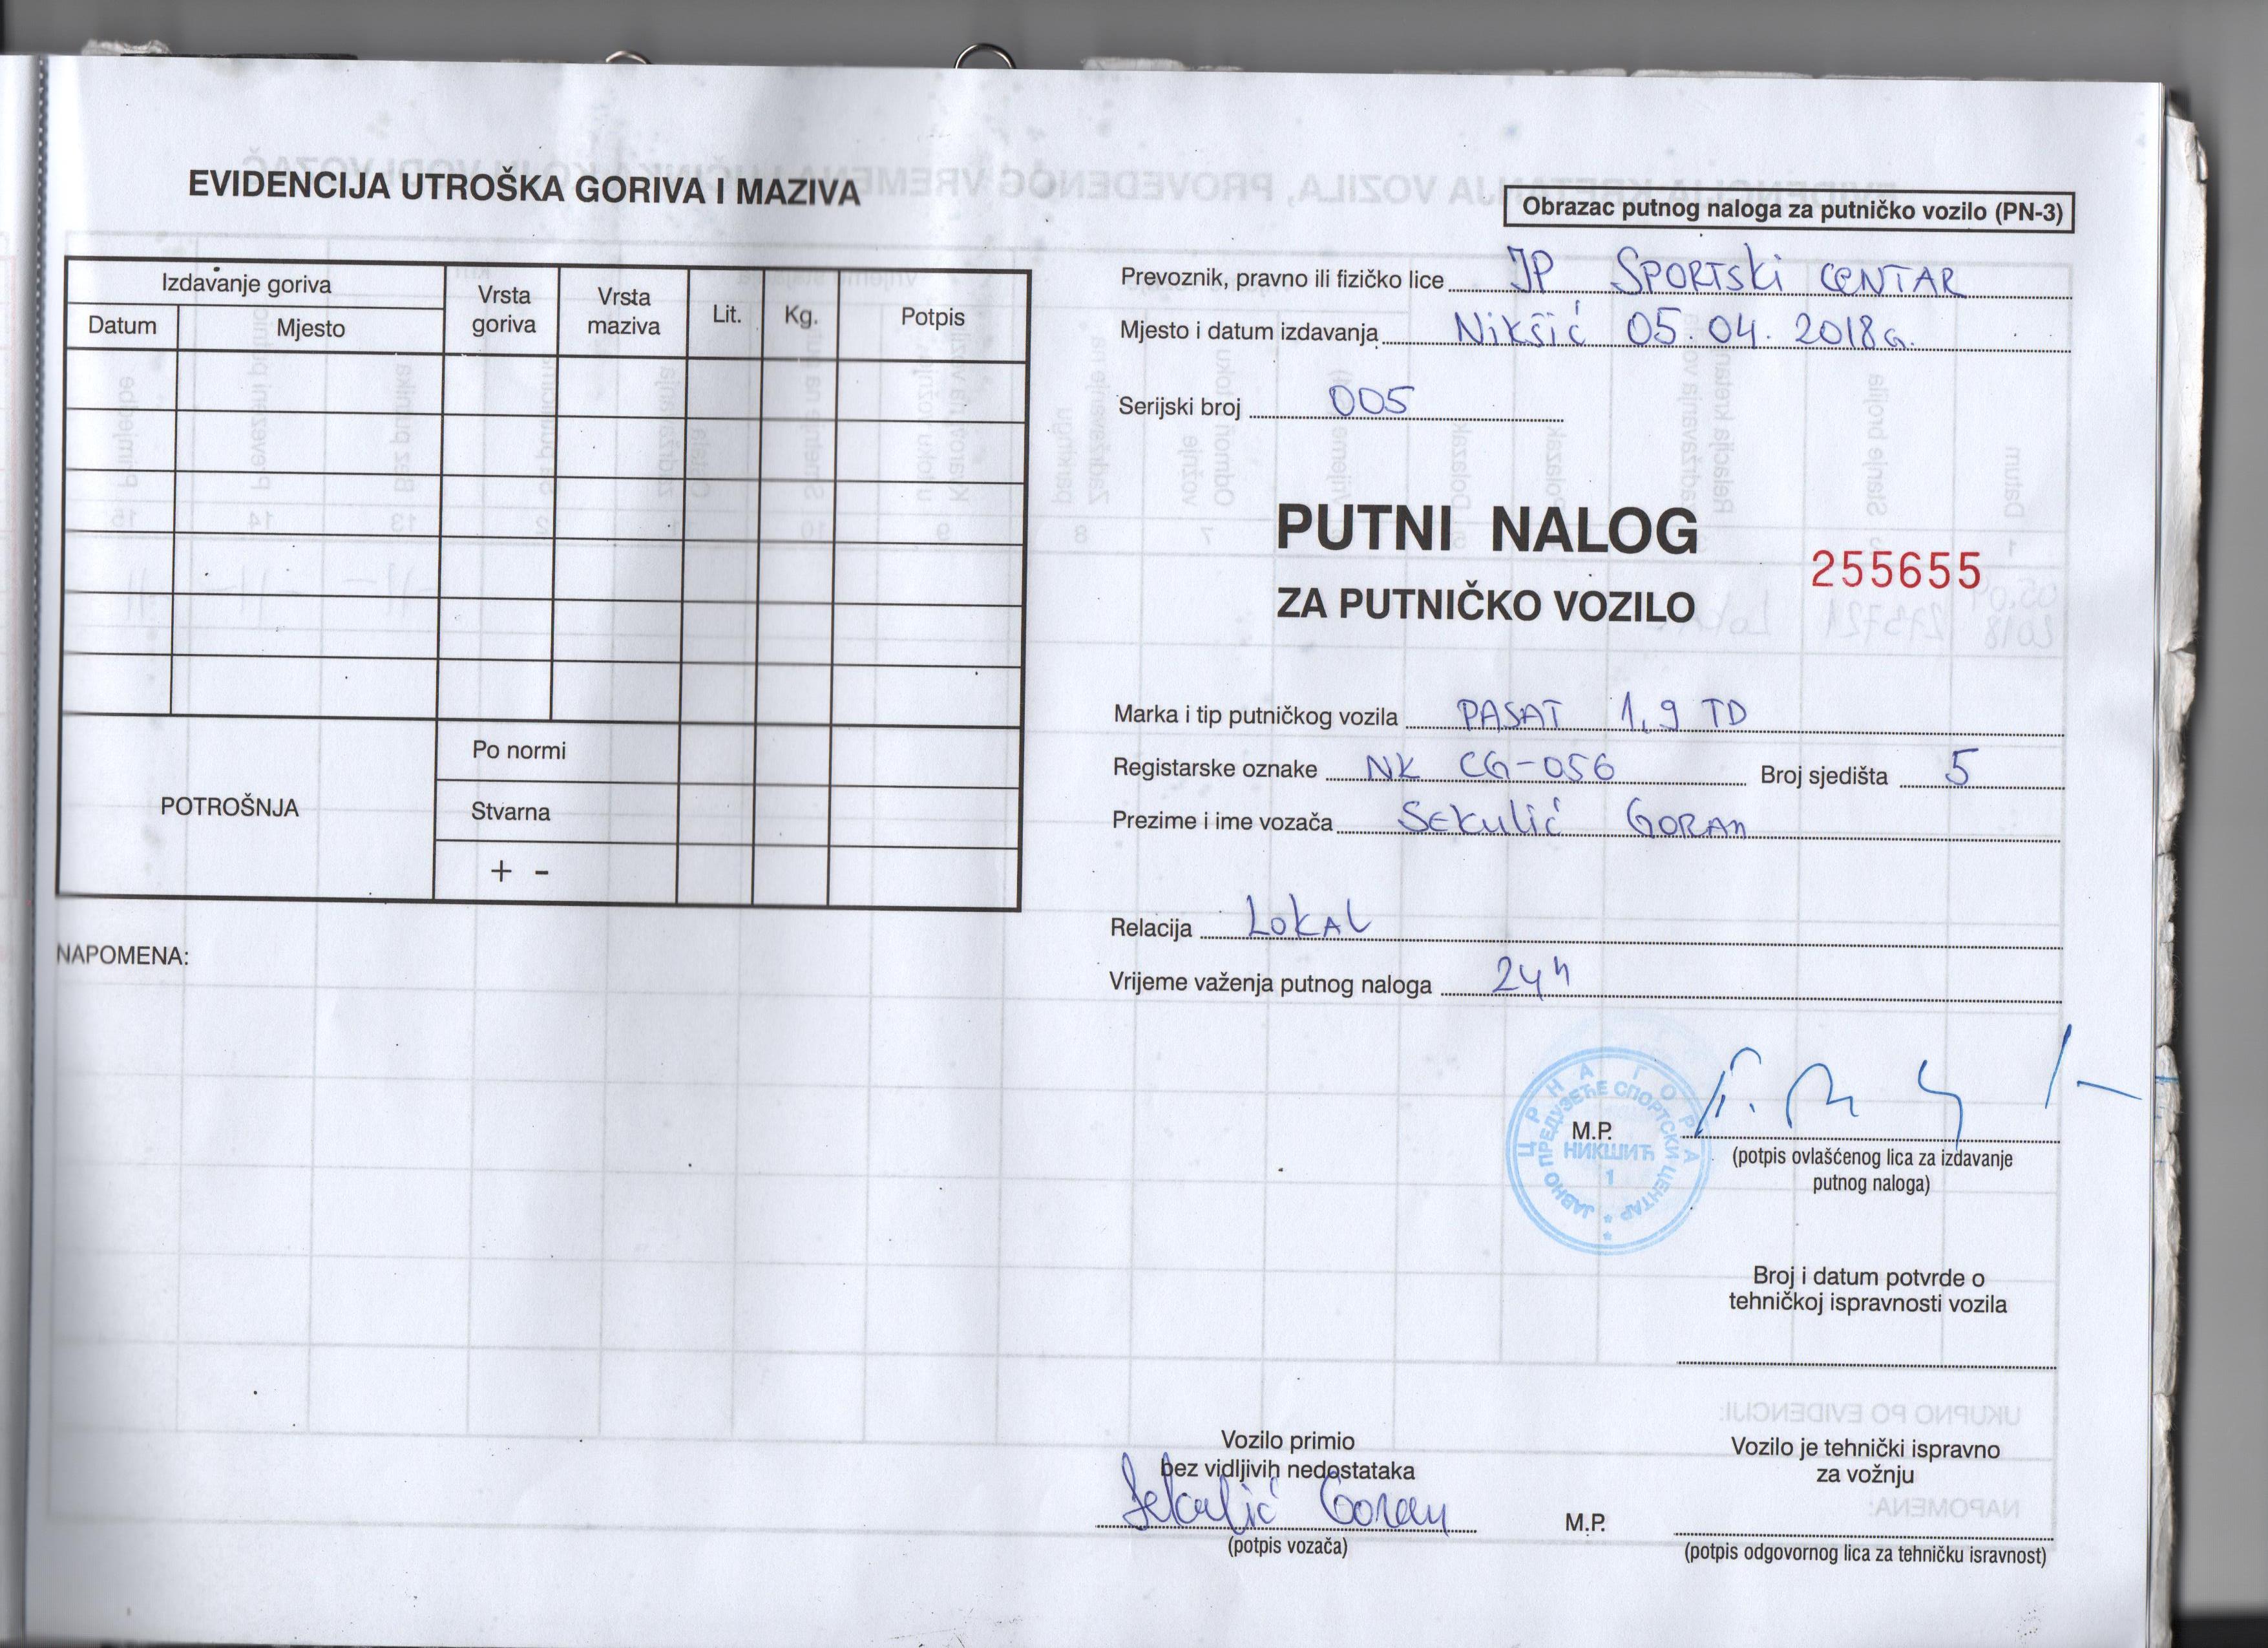 EVIDENCIJA UTROŠKA GORIVA I MAZIVA
Izdavanje goriva
Datum
Mjesto
Vrsta goriva
Vrsta maziva
Lit.
Kg.
Potpis
POTROŠNJA
Po normi
Stvarna
+ -
NAPOMENA:
Obrazac putnog naloga za putničko vozilo (PN-3)
Prevoznik, pravno ili fizičko lice JP SPORTSKI CENTAR
Mjesto i datum izdavanja Nikšić 05.04.2018G.
Serijski broj 005
PUTNI NALOG
255655
ZA PUTNIČKO VOZILO
Marka i tip putničkog vozila PASAT 1,9 TD
Registarske oznake NK CG-056 Broj sjedišta 5
Prezime i ime vozača Sekulić Goran
Relacija LOKAL
Vrijeme važenja putnog naloga 24h
ЦРНА ГОРА
ЈАВНО ПРЕДУЗЕЋЕ СПОРТСКИ ЦЕНТАР
НИКШИЋ
1
M.P.
(potpis ovlašćenog lica za izdavanje
putnog naloga)
Broj i datum potvrde o
tehničkoj ispravnosti vozila
Vozilo primio
bez vidljivih nedostataka
Sekulić Goran
(potpis vozača)
Vozilo je tehnički ispravno
za vožnju
M.P.
(potpis odgovornog lica za tehničku isravnost)